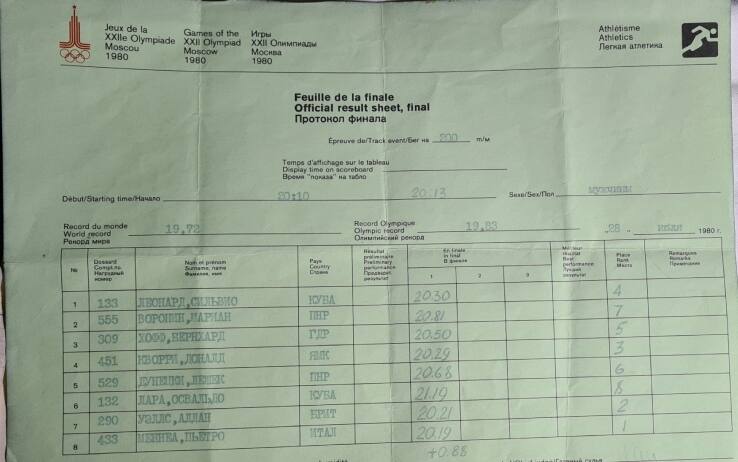 Jeux de la
XXIIe Olympiade
Moscou
1980
Games of the
XXII Olympiad
Moscow
1980
Игры
XXII Олимпиады
Москва
1980
Athlétisme
Athletics
Легкая атлетика
Feuille de la finale
Official result sheet, final
Протокол финала
Épreuve de/Track event/Бег на 200 m/м
Temps d'affichage sur le tableau
Display time on scoreboard
Время "показа" на табло
Début/Starting time/Начало 20:10 20:13 Sexe/Sex/Пол мужчины
Record du monde
World record 19,72
Рекорд мира
Record Olympique
Olympic record 19,83
Олимпийский рекорд
"28" июля 1980 г.
№
Dossard
Compt.no.
Нагрудный
номер
Nom et prénom
Surname, name
Фамилия, имя
Pays
Country
Страна
Résultat
préliminaire
Preliminary
performance
Предварит.
результат
En finale
In final
В финале
1 2 3
Meilleur
résultat
Best
performance
Лучший
результат
Place
Rank
Место
Remarques
Remarks
Примечание
1 133 ЛЕОНАРД,СИЛЬВИО КУБА 20.30 4
2 555 ВОРОНИН,МАРИАН ПНР 20.81 7
3 309 ХОФФ,БЕРНХАРД ГДР 20.50 5
4 451 КВОРРИ,ДОНАЛД ЯМК 20.29 3
5 529 ДУНЕЦКИ,ЛЕШЕК ПНР 20.68 6
6 132 ЛАРА,ОСВАЛЬДО КУБА 21.19 8
7 290 УЭЛЛС,АЛЛАН БРИТ 20.21 2
8 433 МЕННЕА,ПЬЕТРО ИТАЛ 20.19 1
+0.88